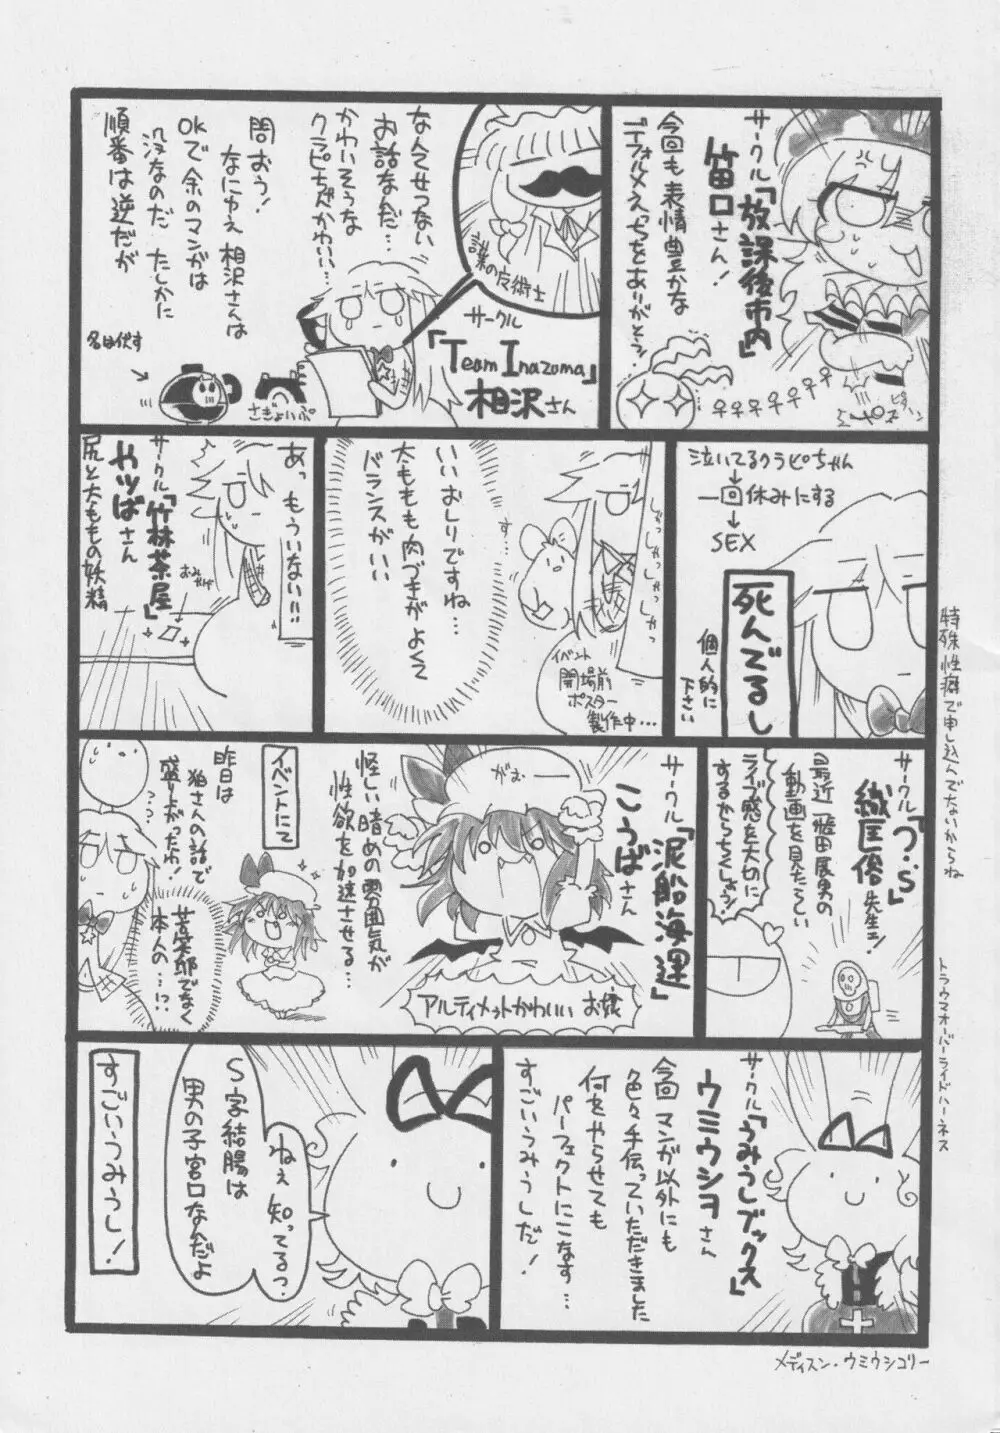 サークル「放課後市内」
笛口さん!
今回も表情豊かな
デフォルメえっちをありがとう!
サークル
「Team Inazuma」
相沢さん
なんてせつない
お話なんだ…
かわいそうな
クラピちゃんかわいい…
問おう!
なにゆえ相沢さんは
OKで余のマンガは
没なのだ たしかに
順番は逆だが
名は伏す
さぎょいぷ
泣いてるクラピちゃん
↓
一回休みにする
↓
SEX
死んでるし
個人的に
下さい
特殊性癖で申し込んでないからね
イベント
開場前
ポスター
製作中…
す…
いいおしりですね…
太ももも肉づきがよくて
バランスがいい
あっ もういない!!
サークル「竹林茶屋」
やツばさん
尻と太ももの妖精
織匡俊先生ェ!
最近
動画を見たらしい
ライブ感を大切に
するからちくしょう!
トラウマオーバーライドハーネス
サークル「泥船海運」
こうばさん
がおーー
アルティメットかわいいお嬢
怪しい暗めの雰囲気が
性欲を加速させる…
イベントにて
昨日は
狼さんの話で
盛り上がったわ!
苦笑邸でなく
本人の…!?
サークル「うみうしブックス」
ウミウシヨさん
今回マンガ以外にも
色々手伝っていただきました
何をやらせても
パーフェクトにこなす…
すごいうみうしだ!
ねぇ知ってるっ
S字結腸は
男の子宮口なんだよ
すごいうみうし!
メディスン・ウミウシコリー